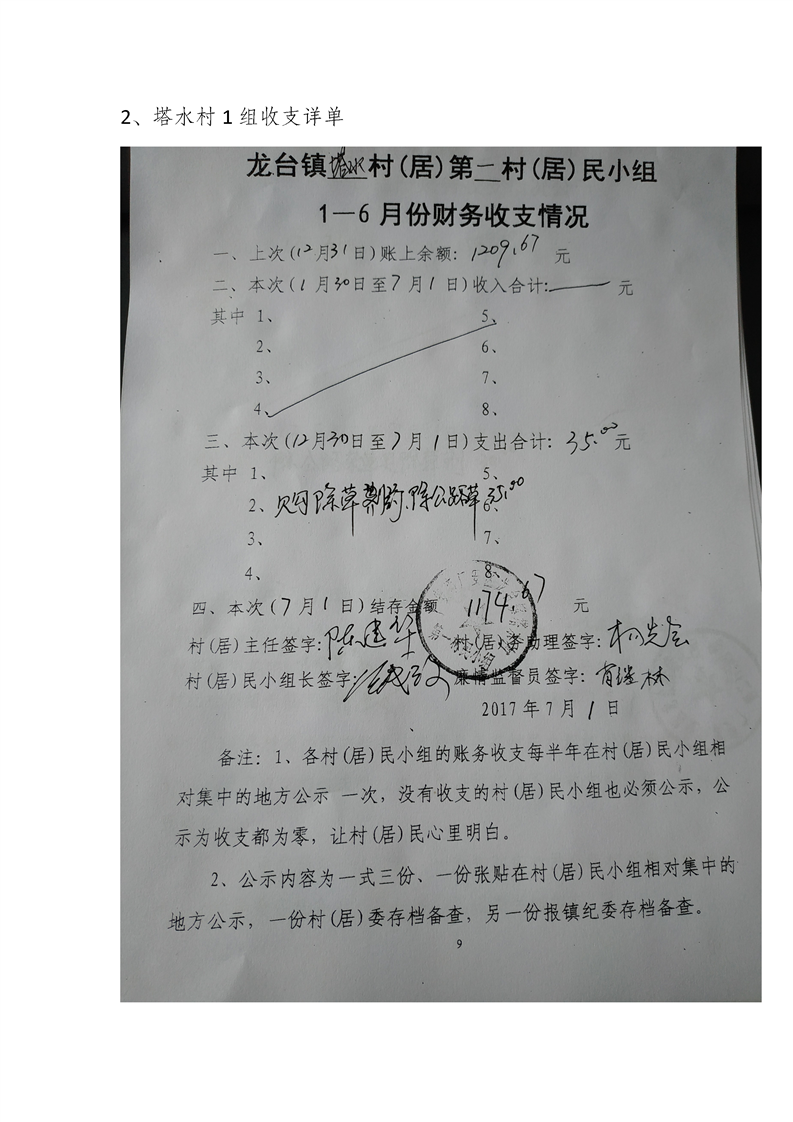 2、塔水村1组收支详单
龙台镇塔水村(居)第二村(居)民小组
1—6月份财务收支情况
一、上次(12月31日)账上余额: 1209.67 元
二、本次(1月30日至7月1日)收入合计:—— 元
其中 1、 5、
2、 6、
3、 7、
4、 8、
三、本次(12月30日至7月1日)支出合计: 35.00元
其中 1、 5、
2、购除草剂 除公路草 35.00 6、
3、 7、
4、 8、
四、本次(7月1日)结存金额 1174.67 元
村(居)主任签字: 陈建华 村(居)务助理签字:
村(居)民小组长签字: 廉情监督员签字: 肖继林
2017年7月1日
备注: 1、各村(居)民小组的账务收支每半年在村(居)民小组相
对集中的地方公示 一次，没有收支的村(居)民小组也必须公示，公
示为收支都为零，让村(居)民心里明白。
2、公示内容为一式三份、一份张贴在村(居)民小组相对集中的
地方公示，一份村(居)委存档备查，另一份报镇纪委存档备查。
9